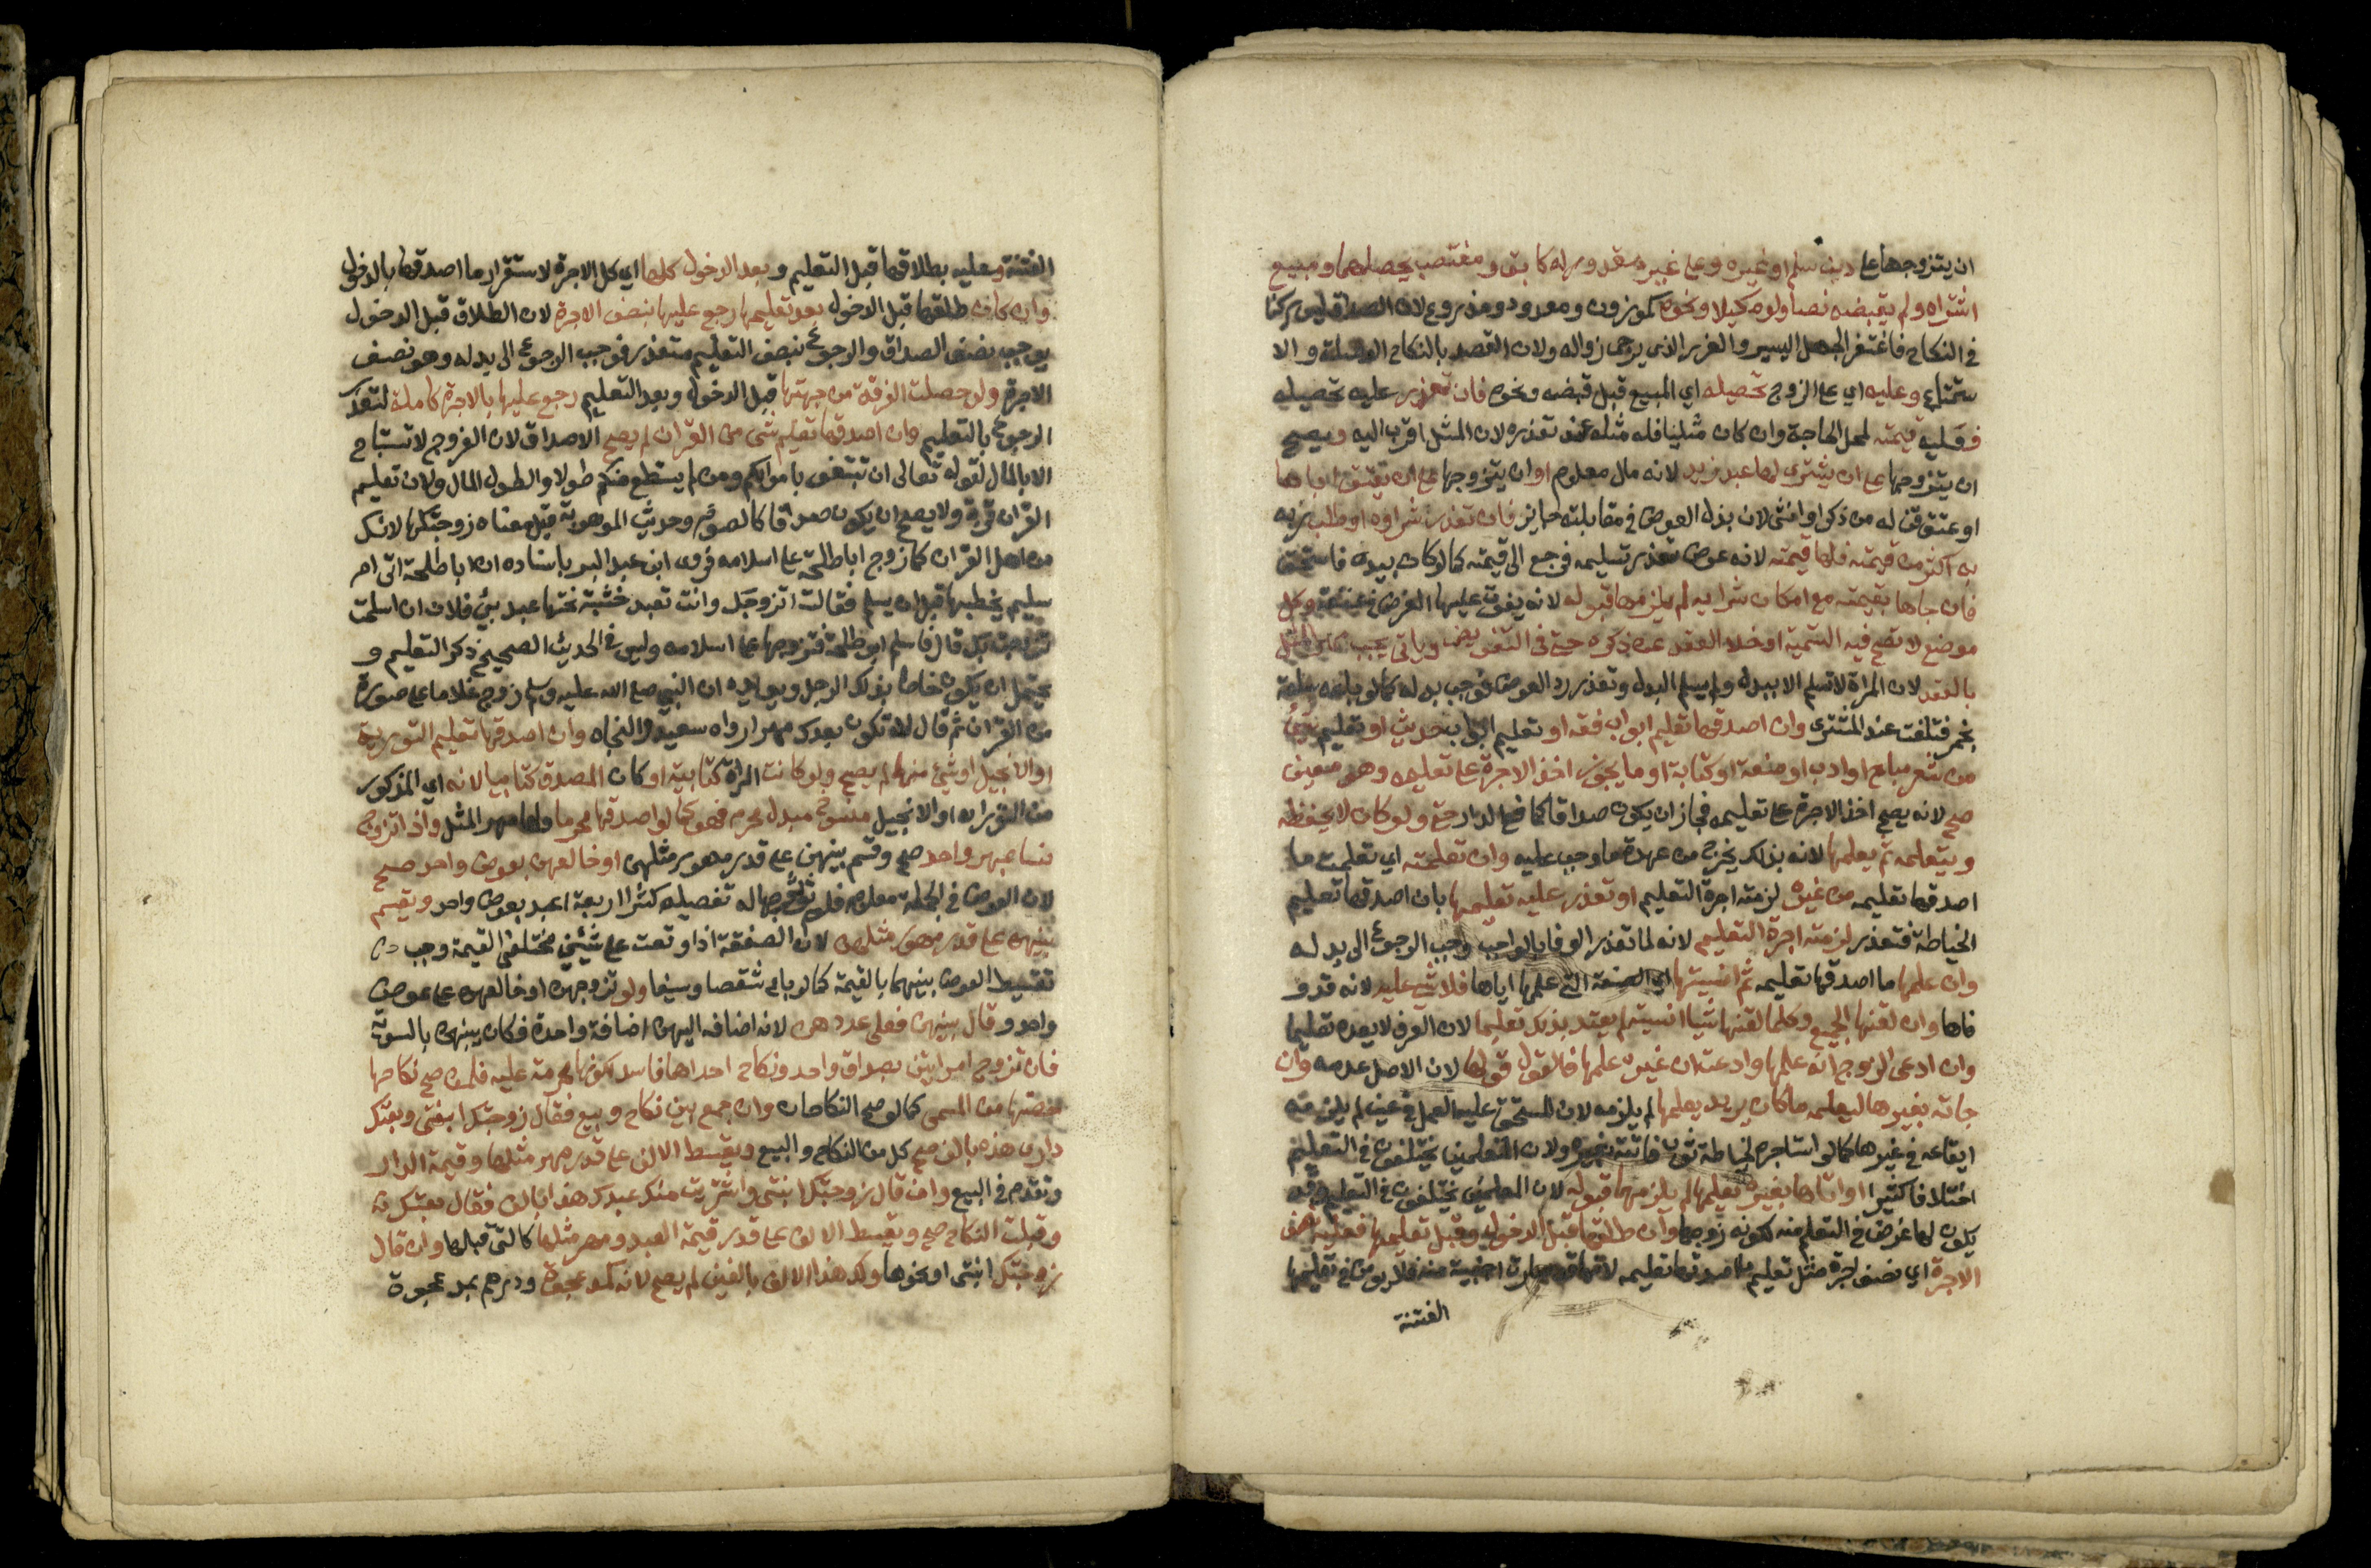 ان يتزوجها على دين سلم او غيره وعلى غير مقدور له كابق ومغتصب يحصلهما ومبيع
اشتراه ولم يقبضه نصا ولو مكيلا ونحوه كموزون ومعدود ومذروع لان الصداق ليس ركنا
في النكاح فاغتفر الجهل اليسير والغرر الذي يرجى زواله ولان القصد بالنكاح الوصلة والا
ستمتاع وعليه اي على الزوج تحصيله اي المبيع قبل قبضه ونحوه فان تعذر عليه تحصيله
فعليه قيمته لمحل الحاجة وان كان مثليا فله مثله عند تعذره لان المثل اقرب اليه ويصح
ان يتزوجها على ان يشتري لها عبد زيد لانه مال معلوم او ان يتزوجها على ان يعتق اباها
او عتق قن له من ذكر او انثى لان بذل العوض في مقابلته جايز فان تعذر شراوه او طلب ربه
به اكثر من قيمته فلها قيمته لانه عوض تعذر تسليمه فرجع الى قيمته كما لو كان بيده فاستحق
فان جاها بقيمته مع امكان شرايه لم يلزمها قبوله لانه يفوت عليها الغرض في عتقه وكل
موضع لا تصح فيه التسمية او خلا العقد عن ذكره حتى في التفويض وياتي يجب مهر المثل
بالعقد لان المراة لا تسلم الا ببدل ولم يسلم البدل وتعذر رد العوض فوجب بدله كما لو باعه سلعة
بخمر فتلفت عند المشتري وان اصدقها تعليم ابواب فقه او تعليم ابواب حديث او تعليم شيء
من شعر مباح او ادب او صنعة او كتابة او ما يجوز اخذ الاجرة على تعليمه وهو معين
صح لانه يصح اخذ الاجرة على تعليمه فجاز ان يكون صداقا كمنافع الدار حتى ولو كان لا يحفظه
ويتعلمه ثم يعلمها لانه بذلك يخرج من عهدة ما وجب عليه وان تعلمته اي تعلمت ما
اصدقها تعليمه من غيره لزمته اجرة التعليم او تعذر عليه تعليمها بان اصدقها تعليم
الخياطة فتعذر لزمته اجرة التعليم لانه لما تعذر الوفا بالواجب وجب الرجوع الى بدله
وان علمها ما اصدقها تعليمه ثم انسيتها اي الصنعة التي علمها اياها فلا شي عليه لانه قد و
فاها وان لقنها الجميع وكلما لقنها شيا انسيته لم يعتد بذلك تعليما لان العرف لا يعده تعليما
وان ادعى الزوج انه علمها وادعت ان غيره علمها فالقول قولها لان الاصل عدمه وان
جاته بغيرها ليعلمه ما كان يريد يعلمها لم يلزمه لان المستحق عليه العمل في عين لم يلزمه
ايقاعه في غيرها كما لو استاجره لخياطة ثوب فاتته بغيره ولان المتعلمين يختلفون في التعليم
اختلافا كثيرا او اتاها بغيره يعلمها لم يلزمها قبوله لان المعلمين يختلفون في التعليم وقد
يكون لها غرض في التعلم منه لكونه زوجها وان طلقها قبل الدخول وقبل تعليمها فعليه نصف
الاجرة اي نصف اجرة مثل تعليم ما اصدقها تعليمه لانها قد صارت اجنبية منه فلا يومن في تعليمها
الفتنة
الفتنة وعليه بطلاقها قبل التعليم وبعد الدخول كلها اي كل الاجرة لاستقرار ما اصدقها بالدخول
وان كان طلقها قبل الدخول بعد تعليمها رجع عليها بنصف الاجرة لان الطلاق قبل الدخول
يوجب نصف الصداق والرجوع بنصف التعليم متعذر فوجب الرجوع الى بدله وهو نصف
الاجرة ولو حصلت الفرقة من جهتها قبل الدخول وبعد التعليم رجع عليها بالاجرة كاملة لتعذر
الرجوع بالتعليم وان اصدقها تعليم شي من القران لم يصح الاصداق لان الفروج لا تستباح
الا بالمال لقوله تعالى ان تبتغوا باموالكم ومن لم يستطع منكم طولا والطول المال ولان تعليم
القران قربة ولا يصح ان يكون صداقا كالصوم وحديث الموهوبة قيل معناه زوجتكها لانك
من اهل القران كما زوج ابا طلحة على اسلامه فروى ابن عبد البر باسناده ان ابا طلحة اتى ام
سليم يخطبها قبل ان يسلم فقالت اتزوجك وانت تعبد خشبة نحتها عبد بني فلان ان اسلمت
تزوجت بك قال فاسلم ابو طلحة فتزوجها على اسلامه وليس في الحديث الصحيح ذكر التعليم و
يحتمل ان يكون خاصا بذلك الرجل ويويده ان النبي صلى الله عليه وسلم زوج غلاما على صورة
من القران ثم قال لا تكون بعدك مهرا رواه سعيد والنجاد وان اصدقها تعليم التورية
او الانجيل او شي منهما لم يصح ولو كانت المراة كتابية او كان المصدق كتابيا لانه اي المذكور
من التوراة او الانجيل منسوخ مبدل محرم فهو كما لو اصدقها محرما ولها مهر المثل واذا تزوج
نسا بمهر واحد صح وقسم بينهن على قدر مهور مثلهن او خالعهن بعوض واحد صح
لان العوض في الجملة معلوم فلم تضر جهالة تفصيله كشرا اربعة اعبد بعوض واحد ويقسم
بينهن على قدر مهور مثلهن لان الصفقة اذا وقعت على شيئين مختلفي القيمة وجب
تقسيط العوض بينهما بالقيمة كما لو باع شقصا وسيفا ولو تزوجهن او خالعهن على عوض
واحد وقال بينهن فعلى عددهن لانه اضافه اليهن اضافة واحدة فكان بينهن بالسوية
فان تزوج امراتين بصداق واحد ونكاح احداهما فاسد لكونها محرمة عليه فلمن صح نكاحها
حصتها من المسمى كما لو صح النكاحان وان جمع بين نكاح وبيع فقال زوجتك ابنتي وبعتك
داري هذه بالف صح كل من النكاح والبيع ويقسط الالف على قدر مهر مثلها وقيمة الدار
وتقدم في البيع وان قال زوجتك ابنتي واشتريت منك عبدك هذا بالف فقال بعتكه
وقبلت النكاح صح ويقسط الالف على قدر قيمة العبد ومهر مثلها كالتي قبلها وان قال
زوجتك ابنتي او نحوها ولك هذا الالف بالفين لم يصح لانه كمد عجوة ودرهم بمد عجوة